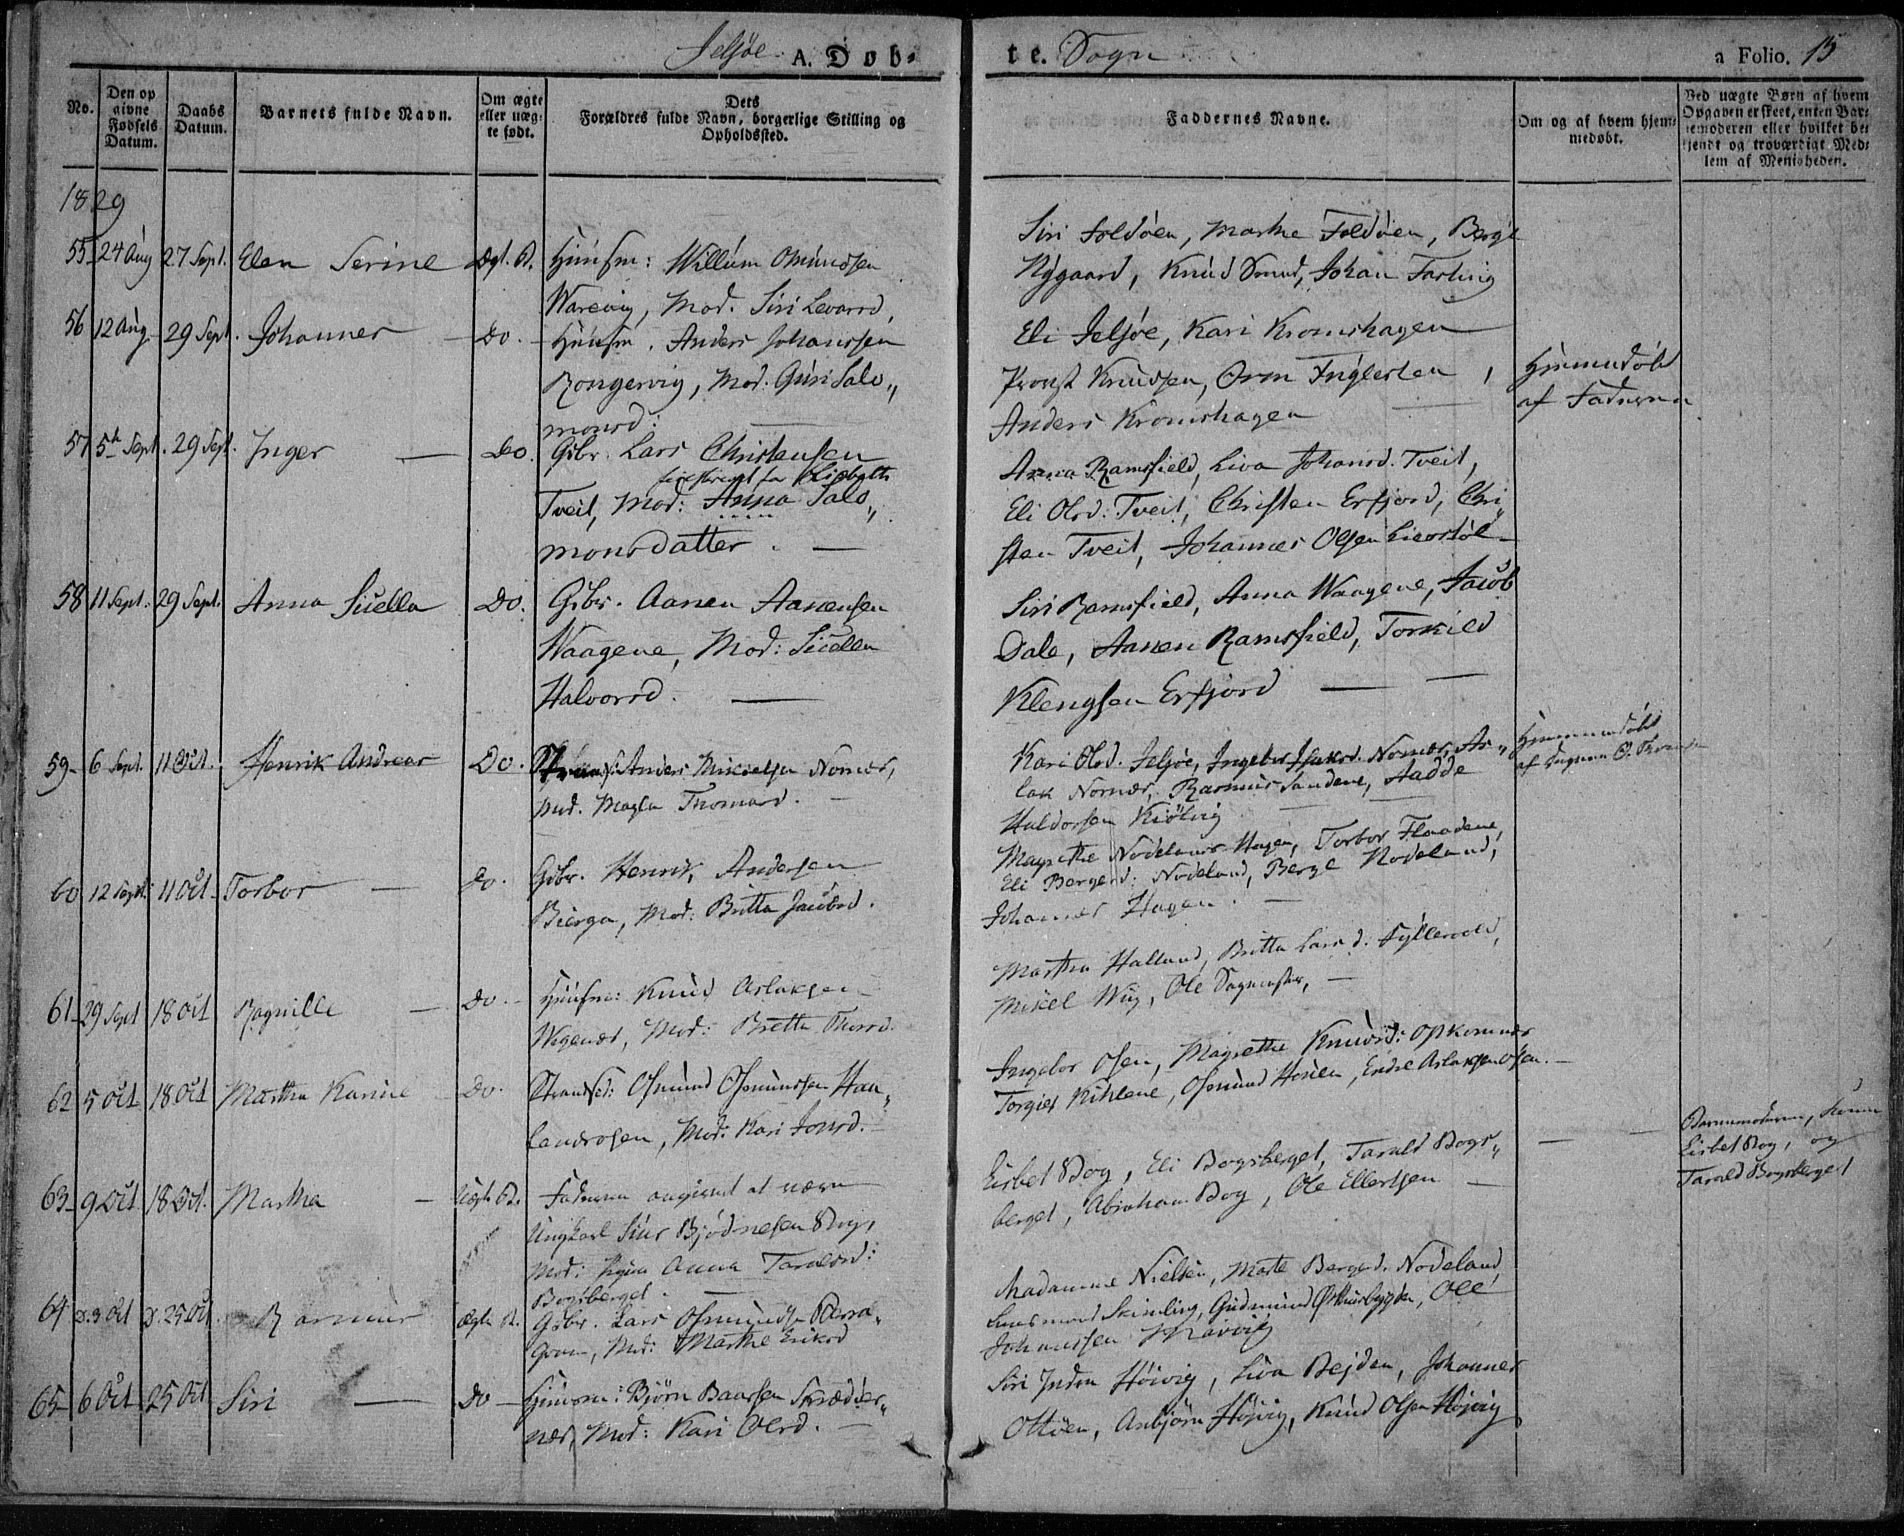 Jelsøe A. Døb-
te. Sogn
a Folio. 15
No.
Den op
givne
Fødsels
Datum.
Daabs
Datum.
Barnets fulde Navn.
Om ægte
eller uæg-
te født.
Dets
Forældres fulde Navn, borgerlige Stilling og
Opholdssted.
Faddernes Navne.
Om og af hvem hjem-
medøbt.
Ved uægte Børn af hvem
Opgaven er skeet, enten Bar-
nemoderen eller hvilket be-
kjendt og troværdigt Med-
lem af Menigheden.
1829
55 24 Aug 27 Sept. Elen Serine Ægt. B. Huusm: Willum Omundsen
Warevig, Mod. Siri Levarsd.
Siri Foldøen, Marthe Foldøen, Bergt
Nygaard, Knud Smed, Johan
56 12 Aug. 29 Sept. Johannes — Do. Huusm. Anders Johanssen
Rongevig, Mod. Guri Salo„
monsd:
Eli Jelsøe, Kari Kromshagen
Provst Knudsen, Orm
Anders Kromshagen
Hiemmedøbt
af Faderen
57 5te Sept. 29 Sept. Inger — Do. Gbr. Lars Christensen
Lisbeth
Tveit, Mod: Anna Salo„
monsdatter. —
Anna Ramsfield, Liva Johansd. Tveit,
Eli Olsd: Tveit, Christen Erfjord, Chri„
sten Tveit, Johannes Olsen
58 11 Sept. 29 Sept. Anna Sicella Do. Gbr. Aanen Aanensen
Waagene, Mod: Sicella
Halvorsd. —
Siri Ramsfield, Anna Waagene, Jacob
Dale, Aanen Ramsfield, Torkild
Klengsen Erfjord —
59 6 Sept. 11 Oct. Henrik Andreas Do. Anders Mickelsen Nornes,
Mod. Magla Thomasd. —
Kari Olsd. Jelsøe, Ingebor Isaksd. Nornes, As„
lak Nornes, Rasmus Sandene, Aadde
Haldorsen Kiølvig
Hiemmedøbt
af
60 12 Sept. 11 Oct. Torbor — Do. Gbr. Henrik Andersen
Bierga, Mod: Britta Jacobsd.
Magrethe Nødelands Hagen, Torbor Flaadene,
Eli Bergesd: Nødeland, Berge Nødeland,
Johannes Hagen. —
61 29 Sept 18 Oct Ragnille — Do. Huusm: Knud Aslaksen
Wigenes, Mod: Britta Thorsd.
Martha Halland, Britta Larsd:
Mikel Wiig, Ole
62 5 Oct 18 Oct Martha Karine Do. Strands: Osmund Osmundsen Hau„
landsosen, Mod: Kari Jonsd. —
Ingebor Osen, Magrethe Knudsd: Opkomnæs
Torgies Kihlene, Osmund Houen, Endre Aslaksen Osen. —
63 9 Oct 18 Oct. Martha — Uægte B. Faderen angivet at være
Ungkarl Siur Bog,
Mod: Pigen Anna Taraldsd:
Bogsberget. —
Lisbet Bog, Eli Bogsberget, Tarald Bogs„
berget, Abraham Bog, Ole Ellertsen —
Barnemoderen,
Lisbet Bog, og
Tarald Bogsberget
64 D. 3 Oct D. 25 Oct Rasmus Ægte B. Gbr. Lars Osmunds.
Mod: Marthe Eriksd
Madamme Nielsen, Marte Bergesd. Nødeland
Gudmund Østhusbygden, Ole
Johanssen
65 6 Oct 25 Oct Siri — Do — Huusm: Bjørn Baarsen Skrædder„
næs, Mod: Kari Olsd. —
Siri Høivig, Liva Bejden, Johannes
Ottøen, Anbjørn Højvig, Knud Olsen Højvig